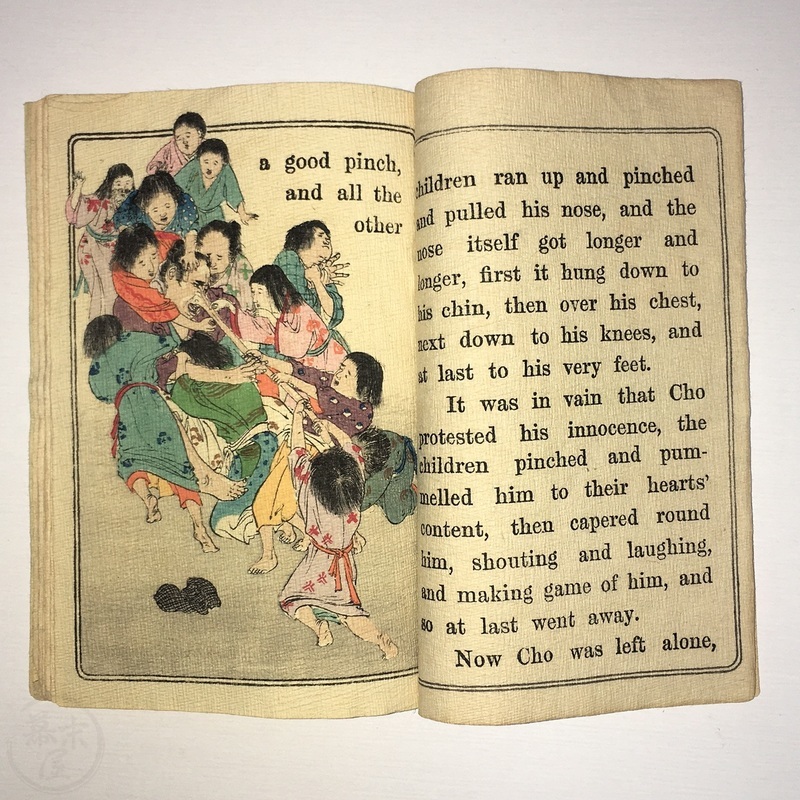 a good pinch,
and all the
other
children ran up and pinched
and pulled his nose, and the
nose itself got longer and
longer, first it hung down to
his chin, then over his chest,
next down to his knees, and
at last to his very feet.
It was in vain that Cho
protested his innocence, the
children pinched and pum-
melled him to their hearts'
content, then capered round
him, shouting and laughing,
and making game of him, and
so at last went away.
Now Cho was left alone,
幕末屋